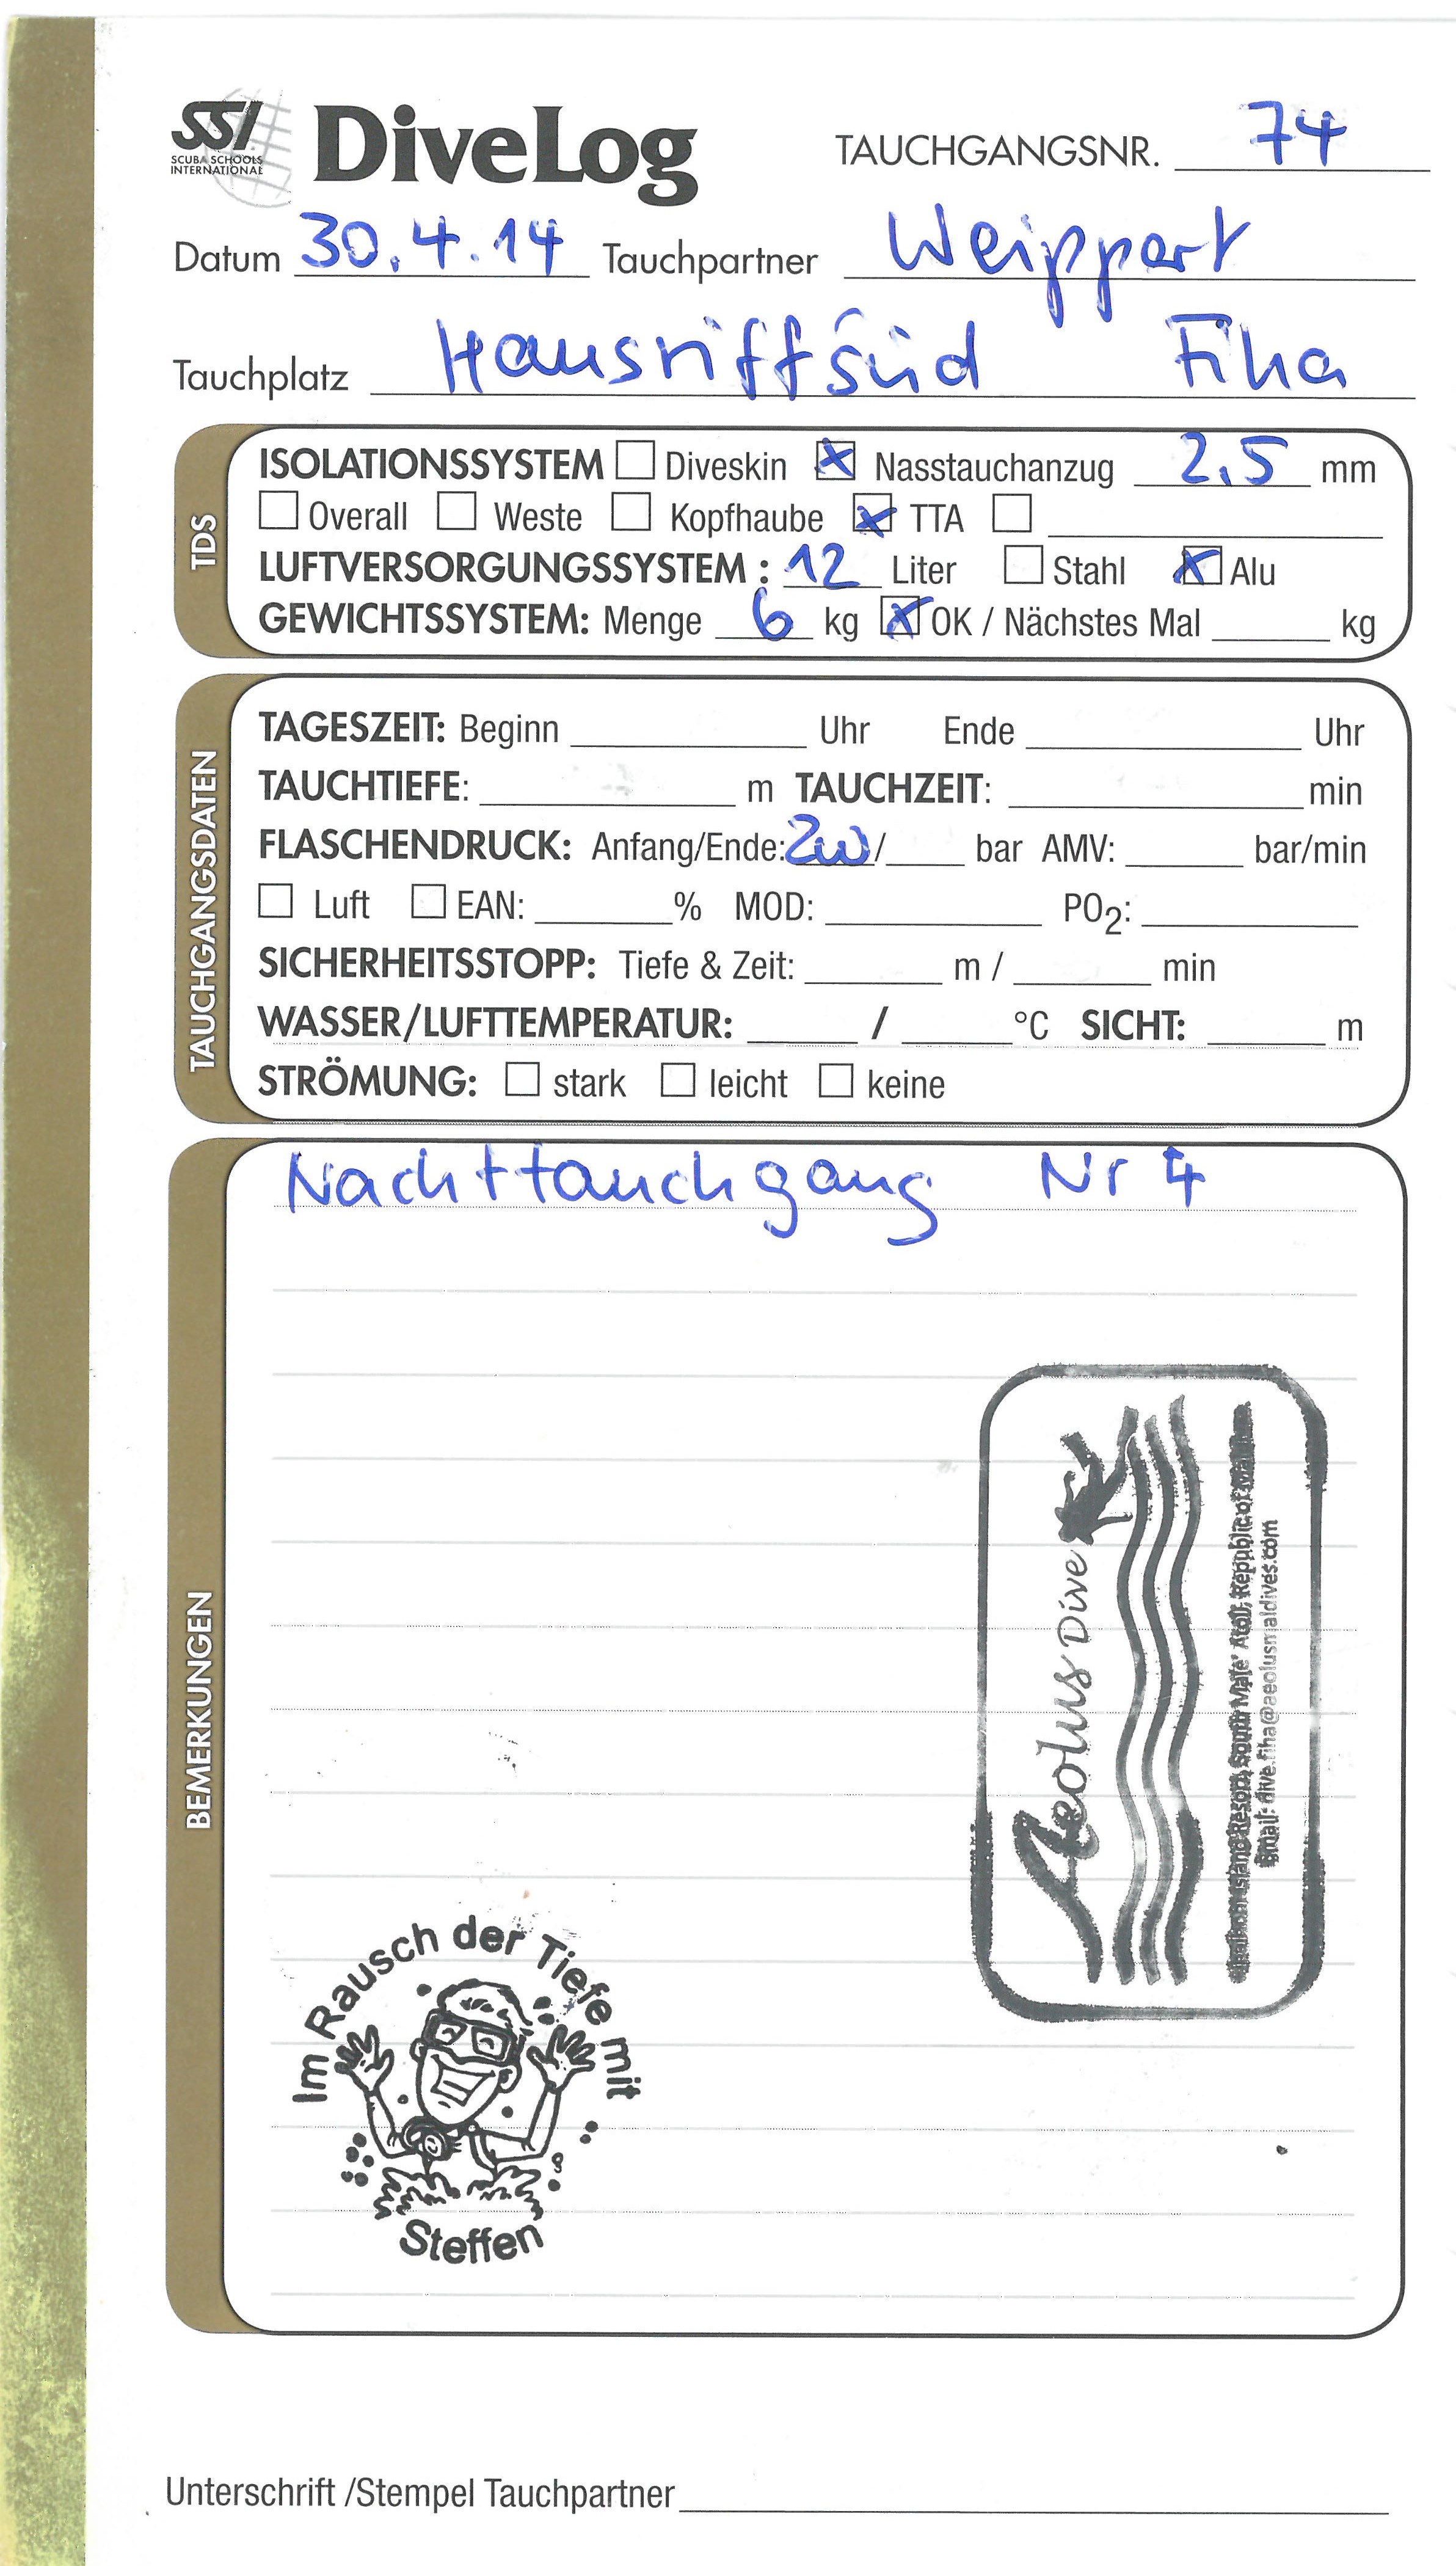 SSI
SCUBA SCHOOLS
INTERNATIONAL
DiveLog
TAUCHGANGSNR. 74
Datum 30.4.14 Tauchpartner Weippert
Tauchplatz Hausriff Süd Fiha
TDS
ISOLATIONSSYSTEM Diveskin Nasstauchanzug 2,5 mm
Overall Weste Kopfhaube TTA
LUFTVERSORGUNGSSYSTEM : 12 Liter Stahl Alu
GEWICHTSSYSTEM: Menge 6 kg OK / Nächstes Mal kg
TAUCHGANGSDATEN
TAGESZEIT: Beginn Uhr Ende Uhr
TAUCHTIEFE: m TAUCHZEIT: min
FLASCHENDRUCK: Anfang/Ende: 200/ bar AMV: bar/min
Luft EAN: % MOD: PO2:
SICHERHEITSSTOPP: Tiefe & Zeit: m / min
WASSER/LUFTTEMPERATUR: / °C SICHT: m
STRÖMUNG: stark leicht keine
BEMERKUNGEN
Nachttauchgang Nr 4
Aeolus Dive
Island Resort, South Male' Atoll, Republic of
Email: dive.fiha@aeolusmaldives.com
Im Rausch der Tiefe mit
Steffen
Unterschrift /Stempel Tauchpartner